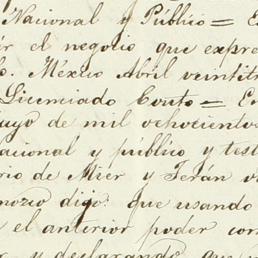 Nacional y Público = E
ar el negocio que expre
o. México Abril veintitr
Licenciado Couto = En
uyo de mil ochocientos
acional y público y test
rio de Mier y Terán v
nozco digo: que usando
el anterior poder con
y declarando que